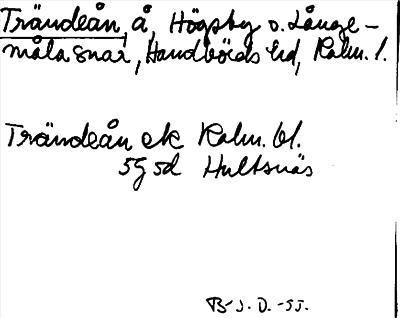 Trändeån, å, Högsby o. Långe-
måla snar, Handbörds hd, Kalm. l.
Trändeån ek Kalm. bl.
5G sd Hultsnäs
B-J. D. -55.